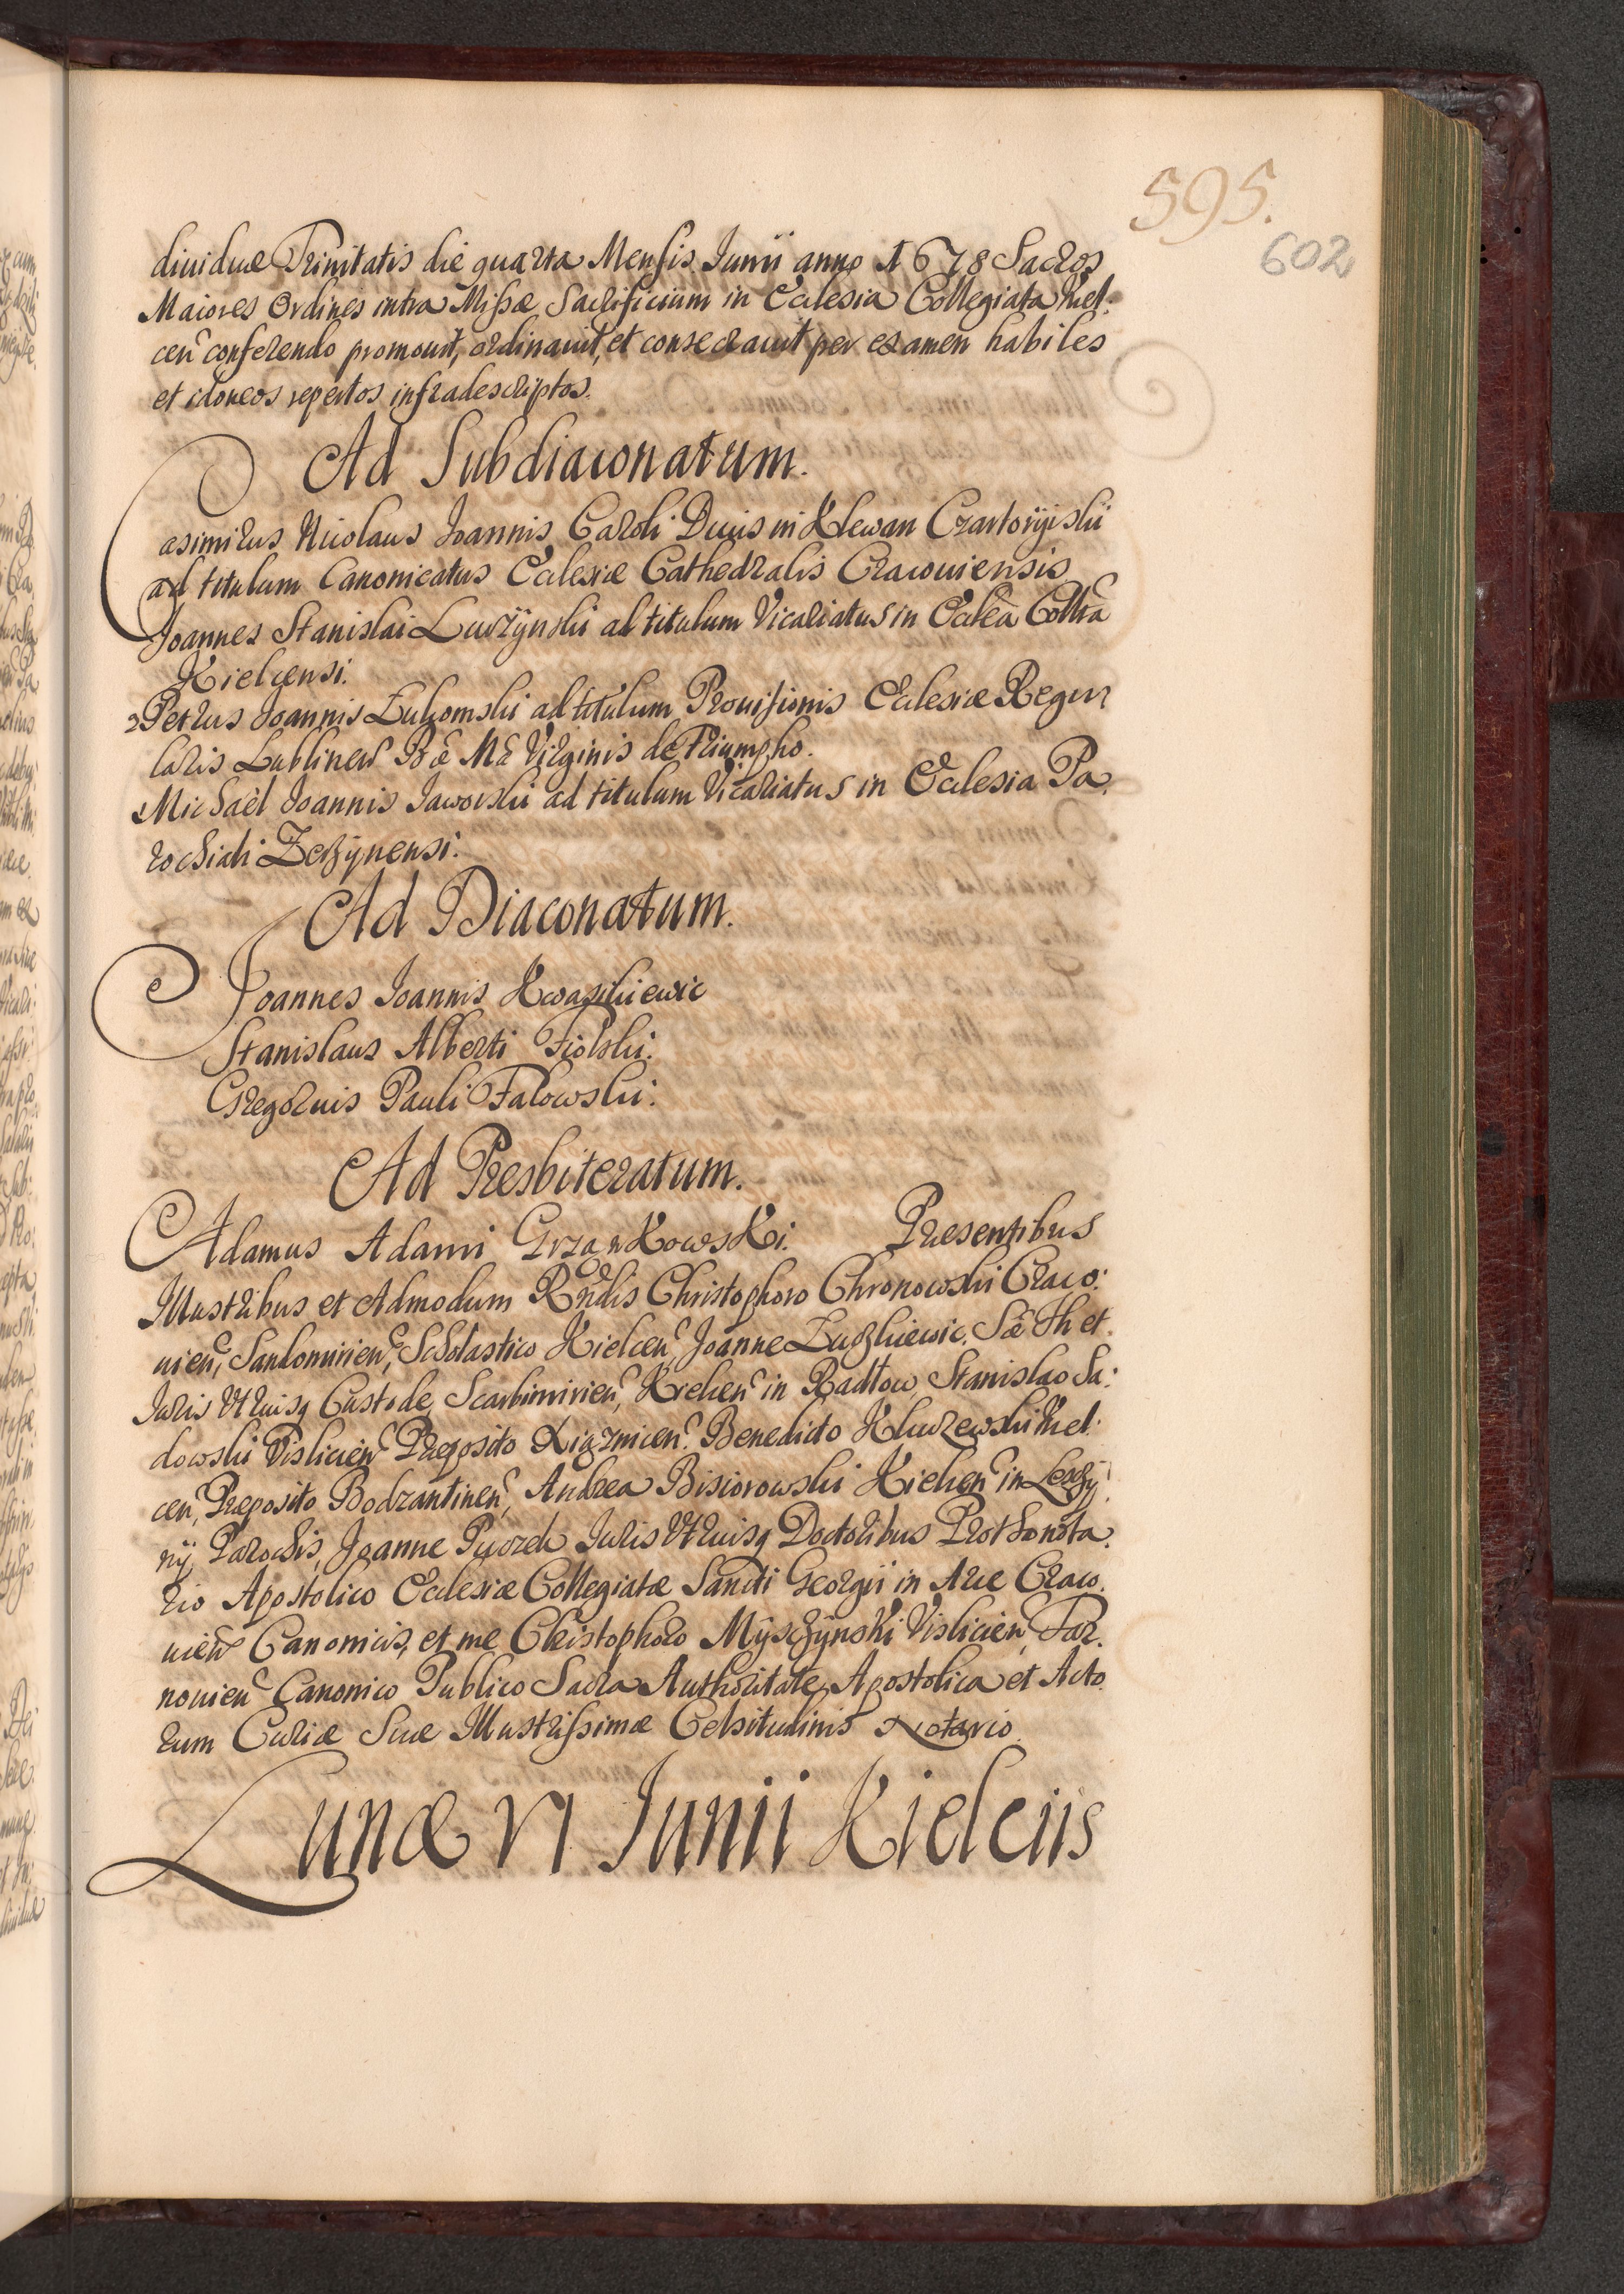 595.
602
diuiduæ Trinitatis die quarta Mensis Junii anno 1678 Sacros
Maiores Ordines intra Missæ Sacrificium in Ecclesia Collegiata Kiel:
cen conferendo promouit, ordinauit, et consecrauit per examen habiles
et idoneos repertos infradescriptos.
Ad Subdiaconatum.
Casimirus Nicolaus Joannis Caroli Ducis in Klewan Czartoryiski
ad titulum Canonicatus Ecclesiæ Cathedralis Cracouiensis
Joannes Stanislai ad titulum Vicariatus in Ecclea Collta
Kielcensi.
Petrus Joannis ad titulum Prouisionis Ecclesiæ Regu
laris Lublinen Bæ Mæ Virginis de Triumpho.
Michael Joannis Jaworski ad titulum Vicariatus in Ecclesia Pa,
rochiali
Ad Diaconatum.
Joannes Joannis Kwaskiewic
Stanislaus Alberti Fiolski.
Gregorius Pauli Falowski.
Ad Presbiteratum.
Adamus Adami GrzankowsKi. Præsentibus
Illustribus et Admodum Rndis Christophoro Chronowski Craco:
uien, Sandomirien, Scholastico Kielcen, Joanne Sæ Th et
Juris Utriusq Custode, Scarbimirien, Kielcen in Radłow, Stanislao Sa:
dowski Vislicien Præposito Xiąznicen. Benedicto Kluczewski Kiel:
cen, Præposito Bodzantinen, Andrea Bisiorowski Kielcen in
nÿ, Parochis, Joanne Juris Utriusq Doctoribus Prothonota.
rio Apostolico Ecclesiæ Collegiatæ Sancti Georgii in Arce Craco.
uien Canonicis, et me Christophoro Mÿszÿnski Vislicien, Tar.
nouien Canonico Publico Sacra Authoritate Apostolica et Acto.
rum Curiæ Suæ Illustrissimæ Celsitudinis Notario.
Lunæ VI Junii Kielciis